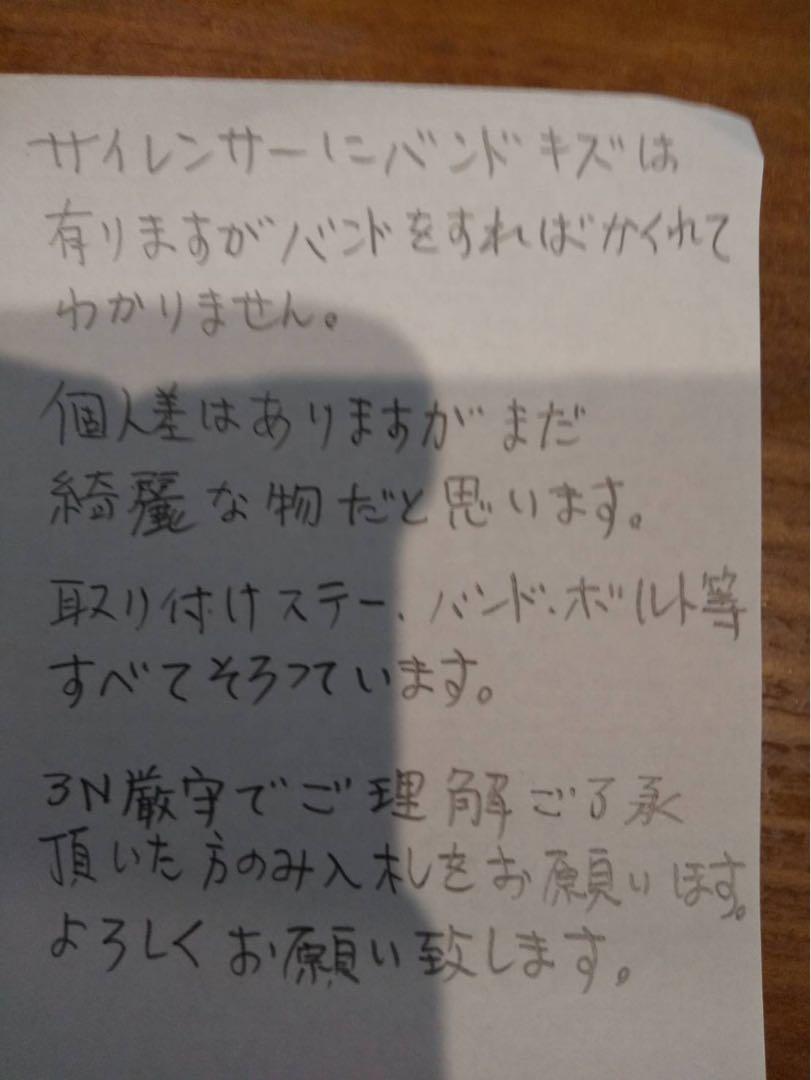 サイレンサーにバンドキズは
有りますがバンドをすればかくれて
わかりません。
個人差はありますがまだ
綺麗な物だと思います。
取り付けステー、バンド、ボルト等
すべてそろっています。
3N厳守でご理解ご了承
頂いた方のみ入札をお願いします。
よろしくお願い致します。